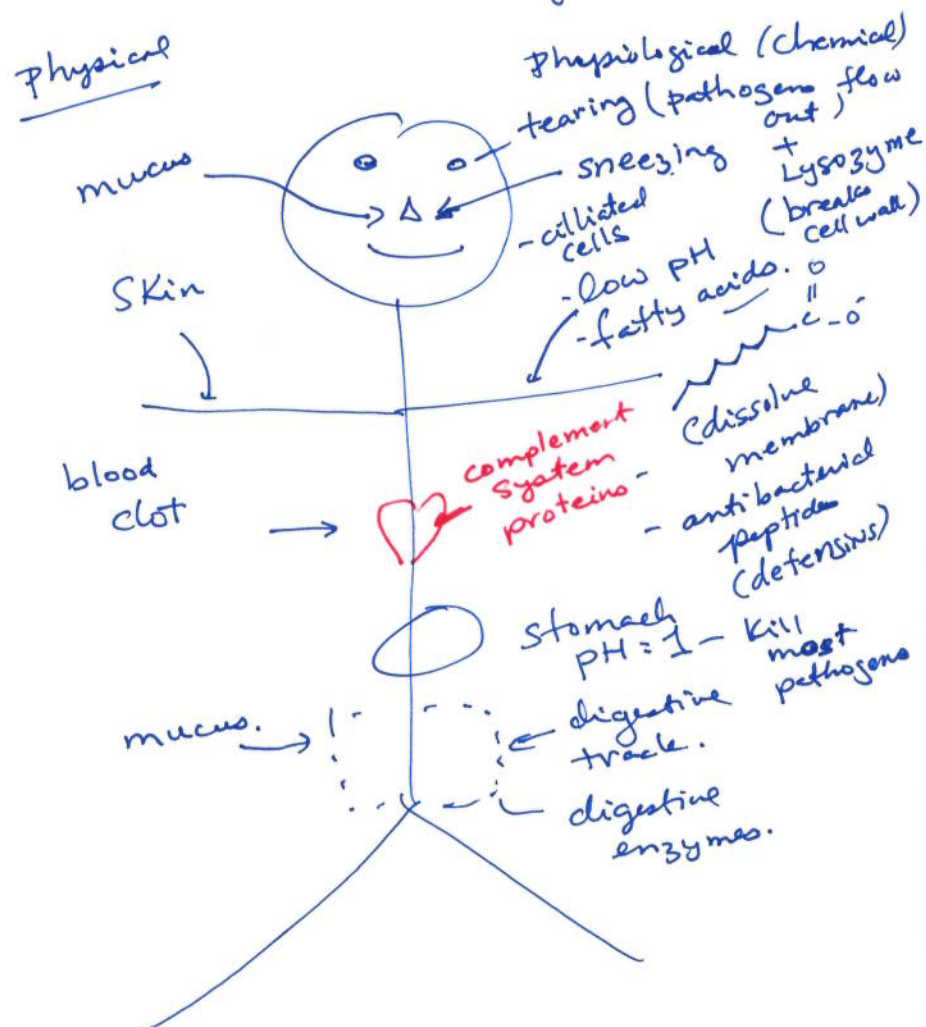 Physical
mucus
Skin
blood
clot
mucus.
Physiological (Chemical)
tearing (pathogens flow
out)
+
Lysozyme
(breaks
cell wall)
sneezing
- cilliated
cells
- low pH
- fatty acids.
O
C
-O-
(dissolve
membrane)
- antibacterial
peptides
(defensins)
complement
system
proteins -
stomach
pH = 1 - Kill
most
pathogens
digestive
track.
digestive
enzymes.